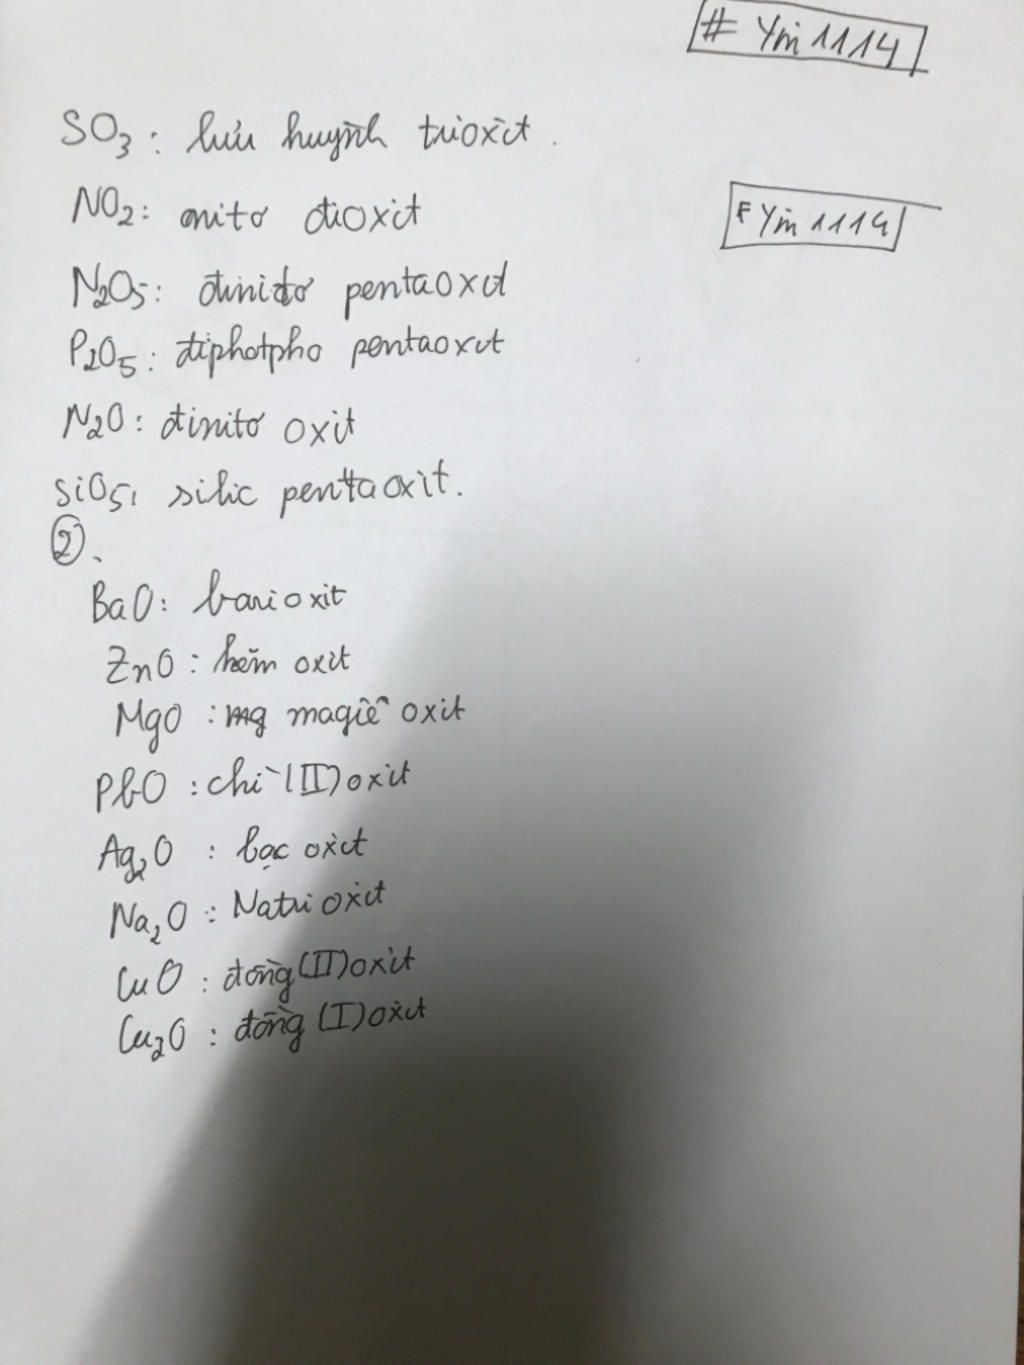 # Ym 1114
SO3: lưu huỳnh trioxit.
NO2: nitơ đioxit
F Ym 1114
N2O5: đinitơ pentaoxit
P2O5: điphotpho pentaoxit
N2O: đinitơ oxit
SiO5: silic pentaoxit.
②.
BaO: bari oxit
ZnO: kẽm oxit
MgO: magiê oxit
PbO: chì (II) oxit
Ag2O: bạc oxit
Na2O: Natri oxit
CuO: đồng (II) oxit
Cu2O: đồng (I) oxit